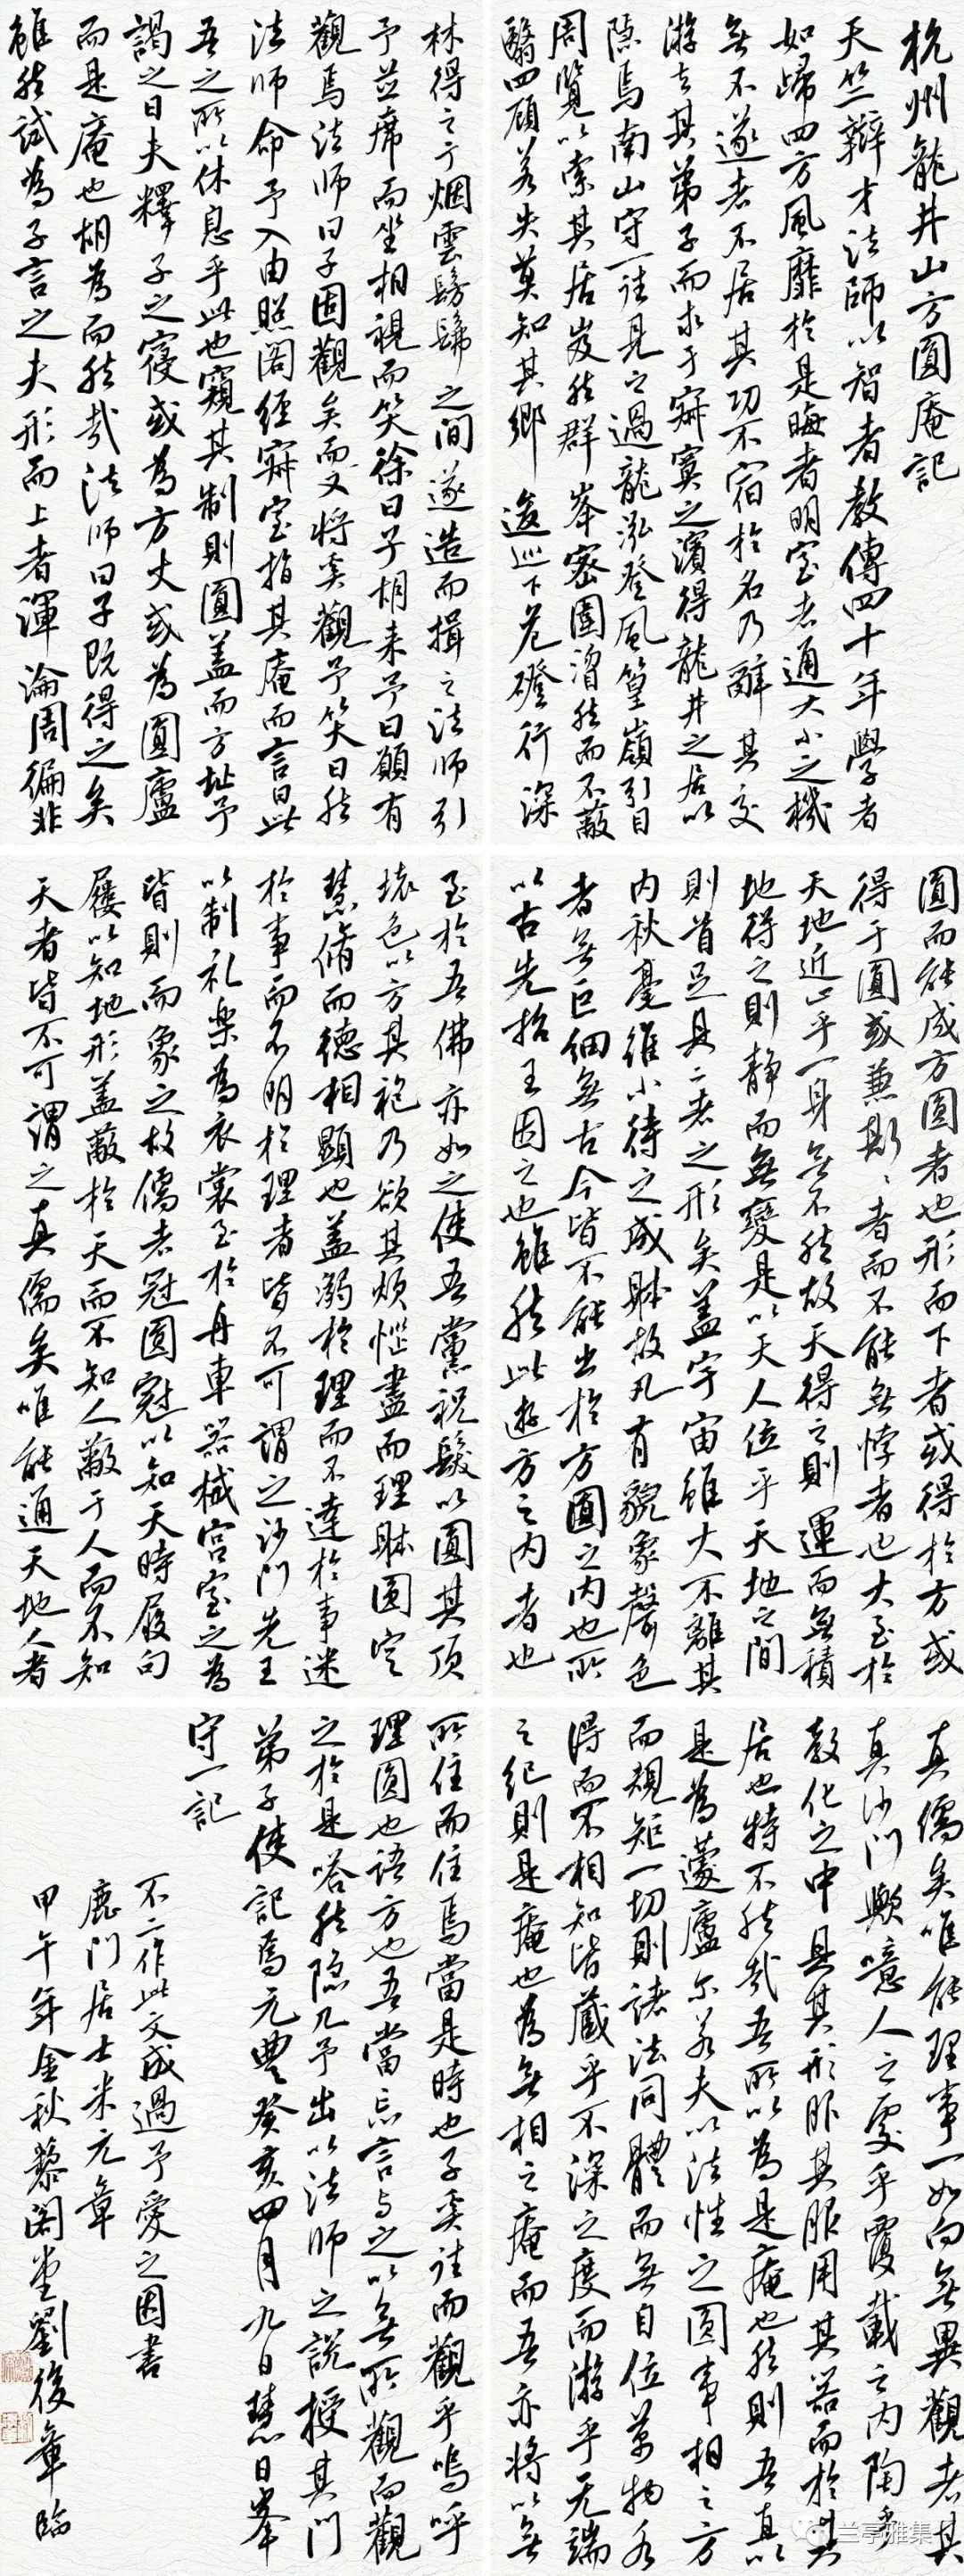 杭州龍井山方圓庵記
天竺辯才法師以智者教傳四十年學者
如歸四方風靡於是晦者明窒者通大小之機
無不遂者不居其功不宿於名乃辭其交
游去其弟子而求于寂寞之濱得龍井之居以
隱焉南山守一往見之過龍泓登風篁嶺引目
周覽以索其居岌然群峯密圍溜然而不蔽
翳四顧若失莫知其鄉逡巡下危磴行深
林得之于烟雲髣髴之間遂造而揖之法師引
予並席而坐相視而笑徐曰子胡来予曰願有
觀焉法師曰子固觀矣而又將奚觀予笑曰然
法師命予入由照閣經寂室指其庵而言曰此
吾之所以休息乎此也窺其制則圓蓋而方址予
謁之曰夫釋子之寢或為方丈或為圓廬
而是庵也胡為而然哉法師曰子既得之矣
雖然試為子言之夫形而上者渾淪周徧非
圓而能成方圓者也形而下者或得於方或
得于圓或兼斯二者而不能無悖者也大至於
天地近止乎一身無不然故天得之則運而無積
地得之則静而無變是以天人位乎天地之間
則首足具二者之形矣蓋宇宙雖大不離其
内秋毫雖小待之成體故凡有貌象聲色
者無巨細無古今皆不能出於方圓之内也所
以古先哲王因之也雖然此遊方之内者也
至於吾佛亦如之使吾黨祝髮以圓其頂
壞色以方其袍乃欲其煩惱盡而理體圓定
慧脩而德相顯也蓋溺於理而不達於事迷
於事而不明於理者皆不可謂之沙門先王
以制礼樂為衣裳至於舟車器械宮室之為
皆則而象之故儒者冠圓冠以知天時履句
屨以知地形蓋蔽於天而不知人蔽于人而不知
天者皆不可謂之真儒矣唯能通天地人者
真儒矣唯能理事一如向無異觀者其
真沙門歟噫人之處乎覆載之内陶乎
教化之中具其形服其服用其器而於其
居也特不然哉吾所以為是庵也然則吾真以
是為蘧廬尔若夫以法性之圓事相之方
而規矩一切則諸法同體而無自位萬物各
得而不相知皆藏乎不深之度而游乎无端
之紀則是庵也為無相之庵而吾亦將以無
所住而住焉當是時也子奚往而觀乎嗚呼
理圓也語方也吾當忘言与之以無所觀而觀
之於是嗒然隱几予出以法師之說授其門
弟子使記焉元豐癸亥四月九日慧日峯
守一記
不二作此文成過予愛之因書
鹿門居士米元章
甲午年金秋藜閣堂劉俊章臨
兰亭雅集